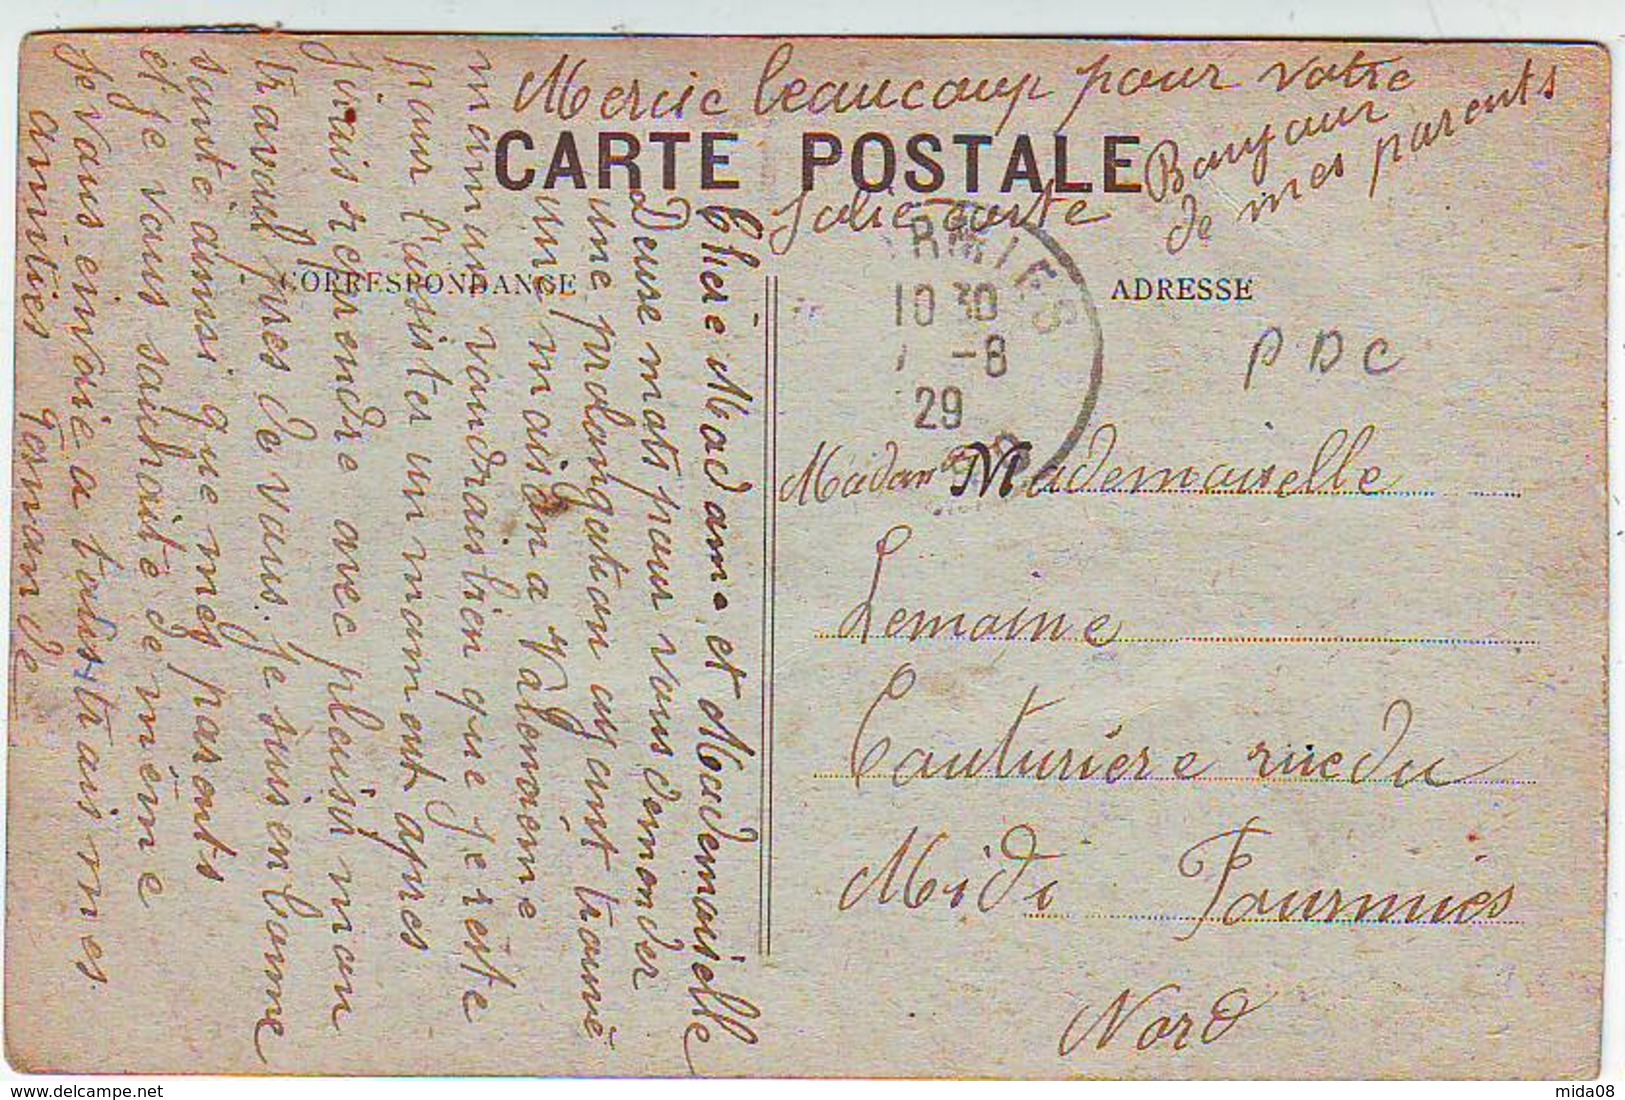 Mercie beaucoup pour votre
Jolie carte
Bonjour
de mes parents
CARTE POSTALE
CORRESPONDANCE
ADRESSE
RMIES
10 30
-8
29
PDC
Chère Madame et Mademoiselle
Deuse mots pour vous demender
une prolongution ayant trouvé
une maison a Valencienne
maman voudrais bien que je reste
pour l'assister un moment apres
j'irais reprendre avec plaisir mon
travail pres de vous. Je suis en bonne
santé ainsi que mes parents
et je vous sauhaite de même
Je vous envoie a toutes trais mes
amitiés Germande
Madam Mademoiselle
Lemoine
Couturière rue du
Midi Fourmies
Nord
mida08